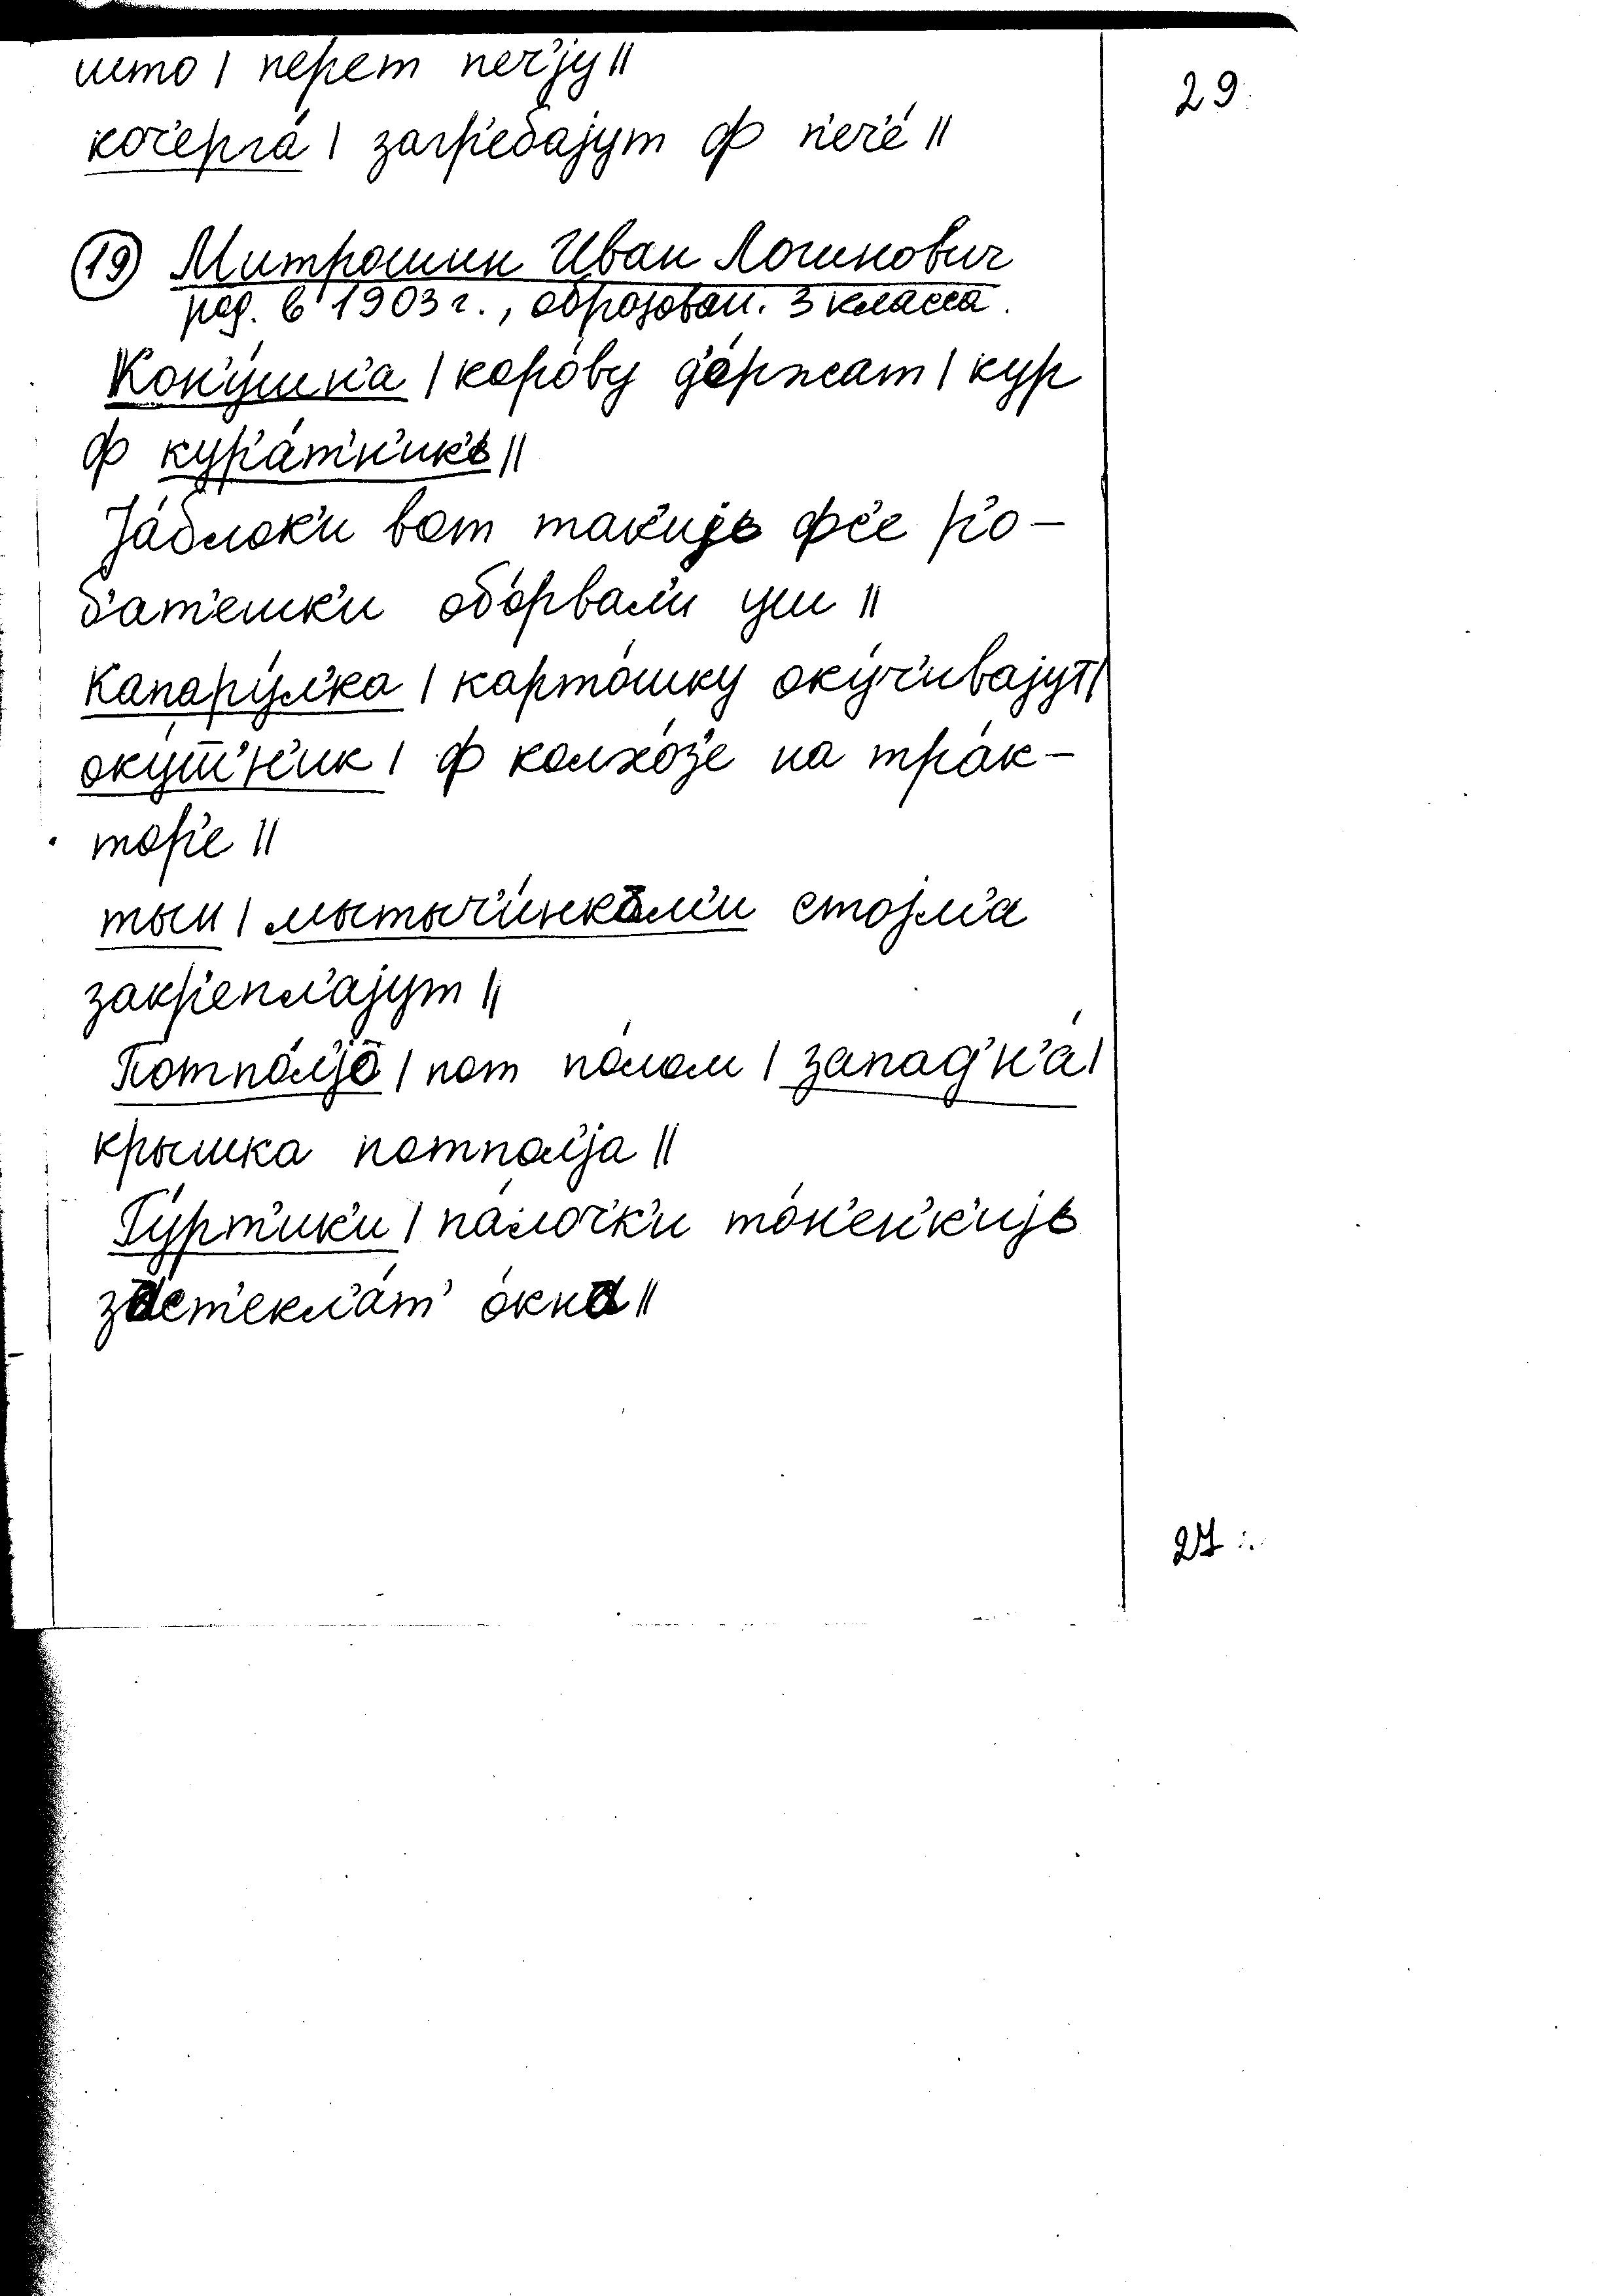 шето | перет печ'jу ||
29.
коч'ерга́ | загр'еба́jут ф п'еч'е́ ||
19 Митрошин Иван Логинович
род. в 1903 г., образован. 3 класса.
Кон'у́шн'а | коро́ву д'е́ржат | кур
ф кур'а́т'н'ик'ь ||
Jа́блок'и вот так'иjь фс'е р'о-
б'ат'ешк'и обо́рвал'и уш ||
Капару́л'ка | карто́шку оку́ч'ивajут |
оку́т'н'ик | ф колхо́з'е на тра́к-
тор'е ||
тын | мытыч'и́нкам'и стоjм'а
закр'епл'аjут ||
Потпо́л'jо | пот по́лом | запад'н'а́ |
крышка потпол'jа ||
Гу́рт'ик'и | па́лоч'к'и то́н'ен'к'иjь
заст'екл'а́т' о́кна ||
27.